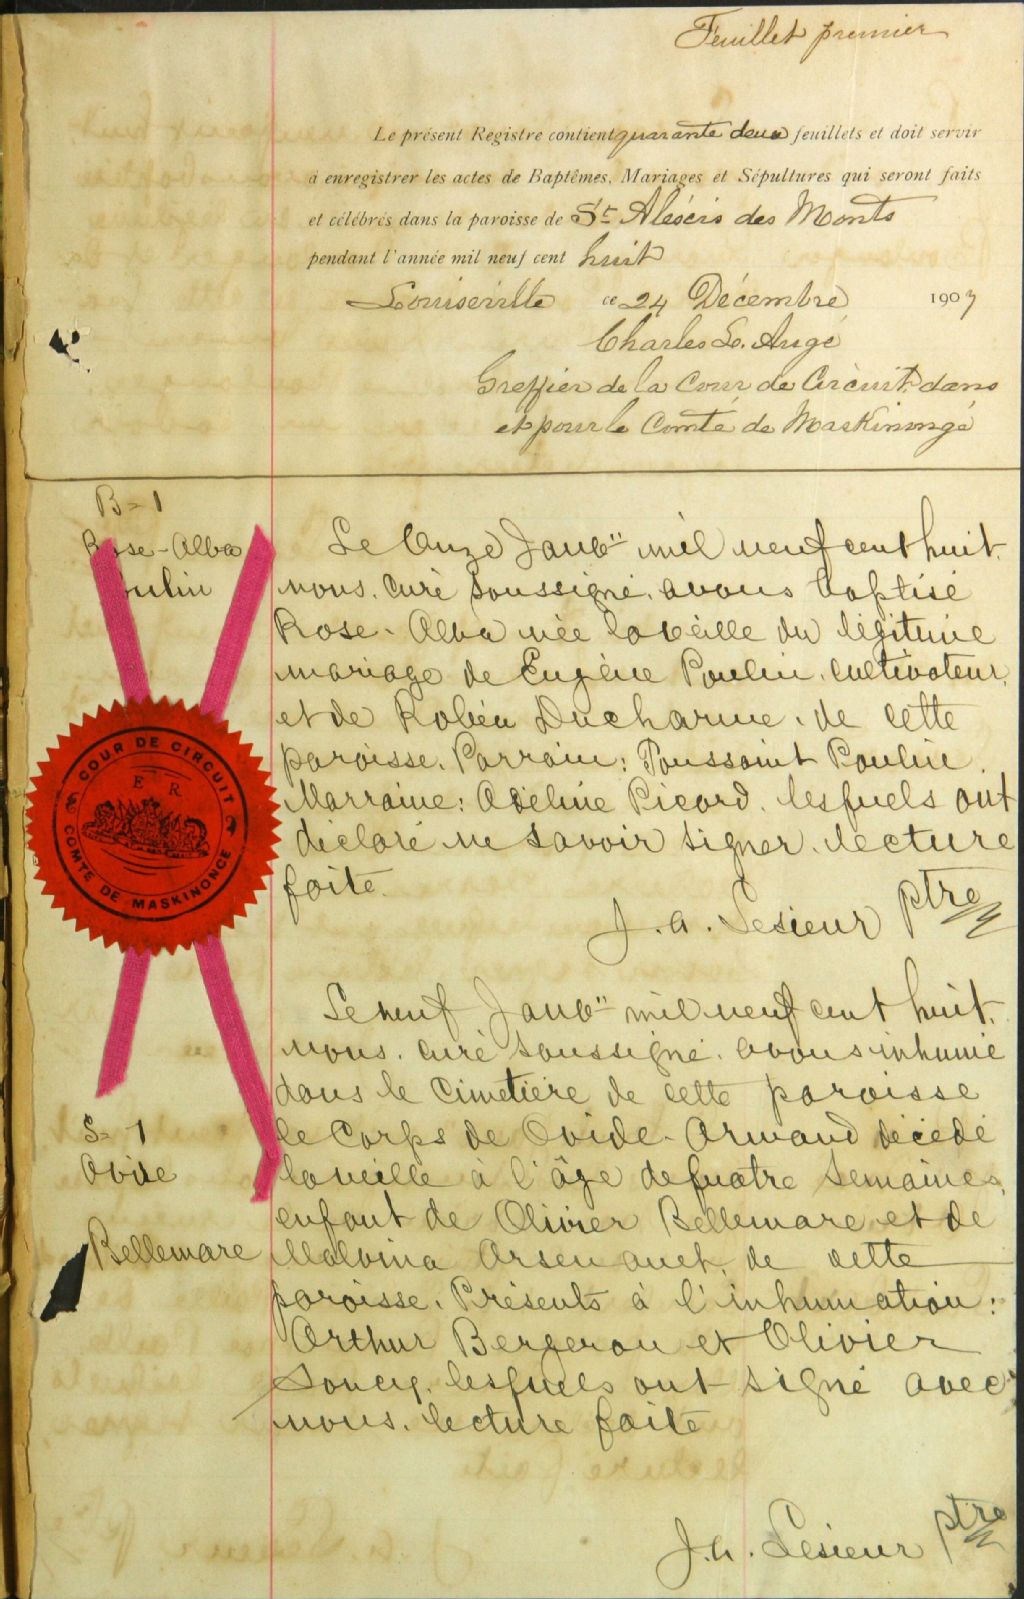 Feuillet premier
Le présent Registre contient quarante deux feuillets et doit servir
à enregistrer les actes de Baptêmes, Mariages et Sépultures qui seront faits
et célébrés dans la paroisse de St Alexis des Monts
pendant l'année mil neuf cent huit
Louiseville ce 24 Décembre 1907
Charles L. Augé
Greffier de la Cour de Circuit dans
et pour le Comté de Maskinongé
B = 1
Rose-Alba
Poulin
Le Onze Janvr mil neuf cent huit,
nous, curé soussigné, avons baptisé
Rose-Alba née la veille du légitime
mariage de Eugène Poulin, cultivateur,
et de Robéa Ducharme, de cette
paroisse. Parrain: Toussaint Poulin.
Marraine: Adéline Picard, lesquels ont
déclaré ne savoir signer, lecture
faite.
J. A. Lesieur ptre
COUR DE CIRCUIT
E R
COMTE DE MASKINONGE
Le neuf Janvr mil neuf cent huit,
nous, curé soussigné, avons inhumé
dans le Cimetière de cette paroisse
S = 1
le Corps de Ovide-Armand décédé
Ovide
la veille à l'âge de quatre semaines,
enfant de Olivier Bellemare et de
Bellemare
Malvina Arsenault, de cette
paroisse. Présents à l'inhumation:
Arthur Bergeron et Olivier
Soucy, lesquels ont signé avec
nous, lecture faite
J. A. Lesieur ptre